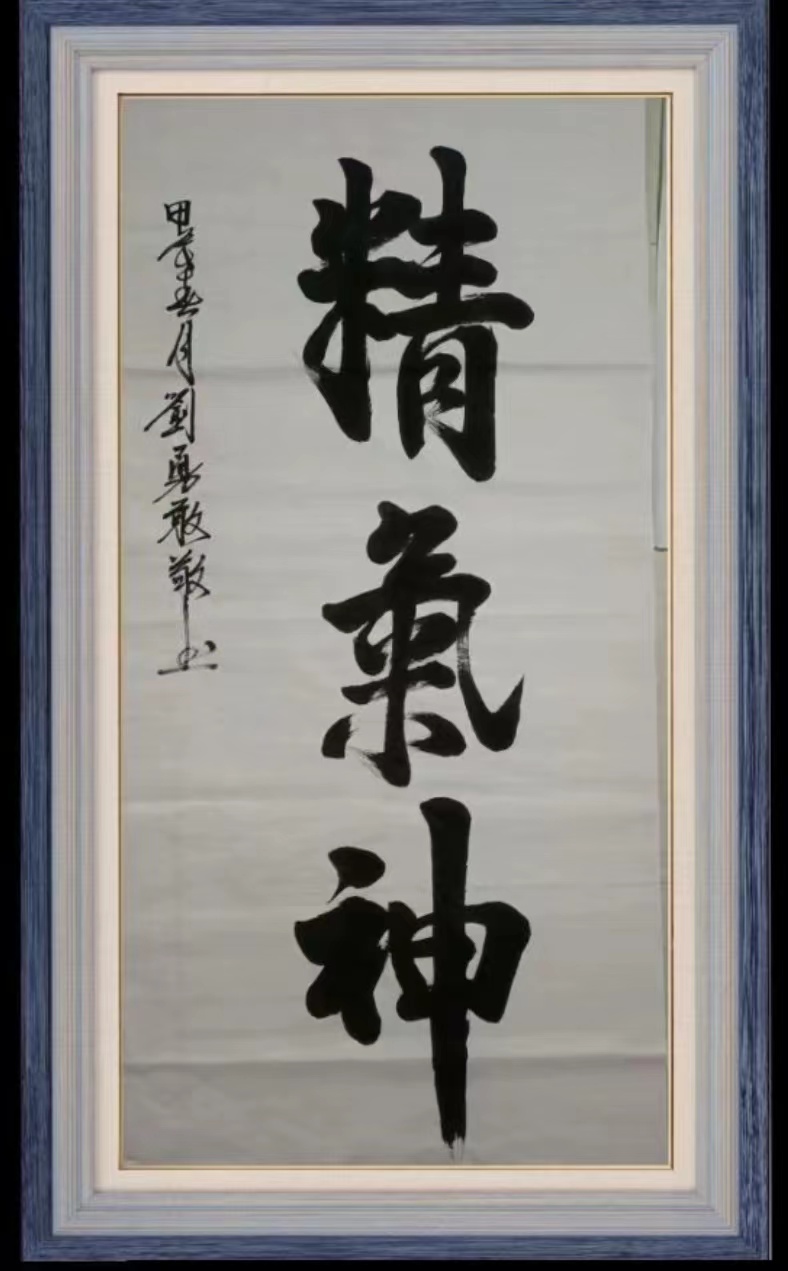 精氣神
甲辰春月劉勇敢敬书